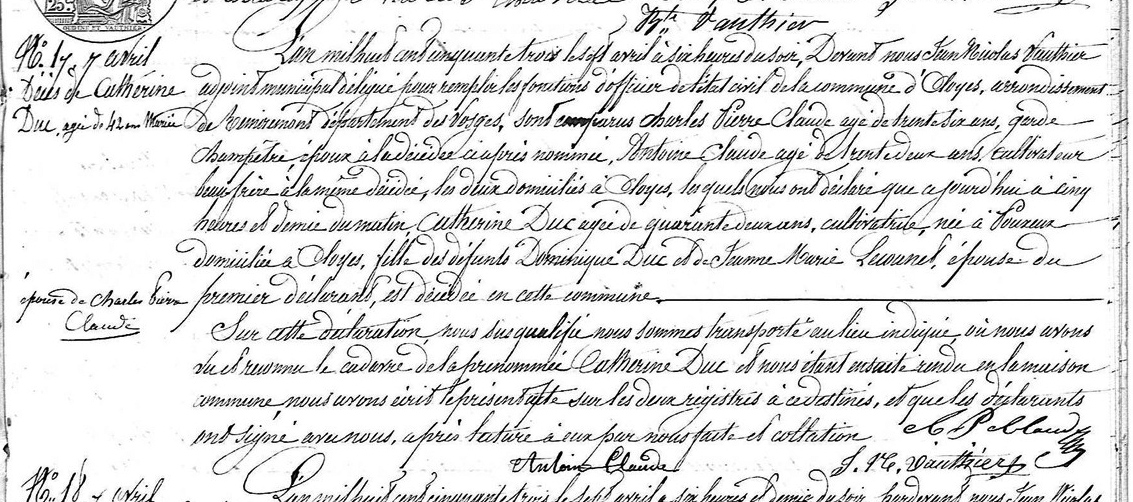 Bte Vauthier
No. 17. 7 avril
Décès de Catherine
Duc, agée de 42 ans Mariée
épouse de Charles Pierre
Claude
L'an mil huit cent cinquante trois le sept avril à six heures du soir, Devant nous Jean Nicolas Vauthier
adjoint municipal délégué pour remplir les fonctions d'officier de l'état civil de la commune d'Eloyes, arrondissement
de Remiremont département des Vosges, sont comparus Charles Pierre Claude agé de trente six ans, garde
champêtre, époux à la décédée ci après nommée, Antoine Claude agé de trente deux ans, cultivateur
beau frère à la même décédée, les deux domiciliés à Eloyes, lesquels nous ont déclaré que aujourd'hui à cinq
heures et demie du matin, Catherine Duc agée de quarante deux ans, cultivatrice, née à Pouxeux
domiciliée à Eloyes, fille des défunts Dominique Duc et de Jeanne Marie épouse du
premier déclarant, est décédée en cette commune.
Sur cette déclaration, nous susqualifié nous sommes transporté au lieu indiqué, où nous avons
vu et reconnu le cadavre de la prénommée Catherine Duc et nous étant ensuite rendu en la maison
commune, nous avons écrit le présent acte sur les deux registres à ce destinés, et que les déclarants
ont signé avec nous, après lecture à eux par nous faite et collation
C P Claude
Antoine Claude
J. N. Vauthier
No. 18 7 avril
L'an mil huit cent cinquante trois le sept avril à six heures et demie du soir, pardevant nous Jean Nicolas